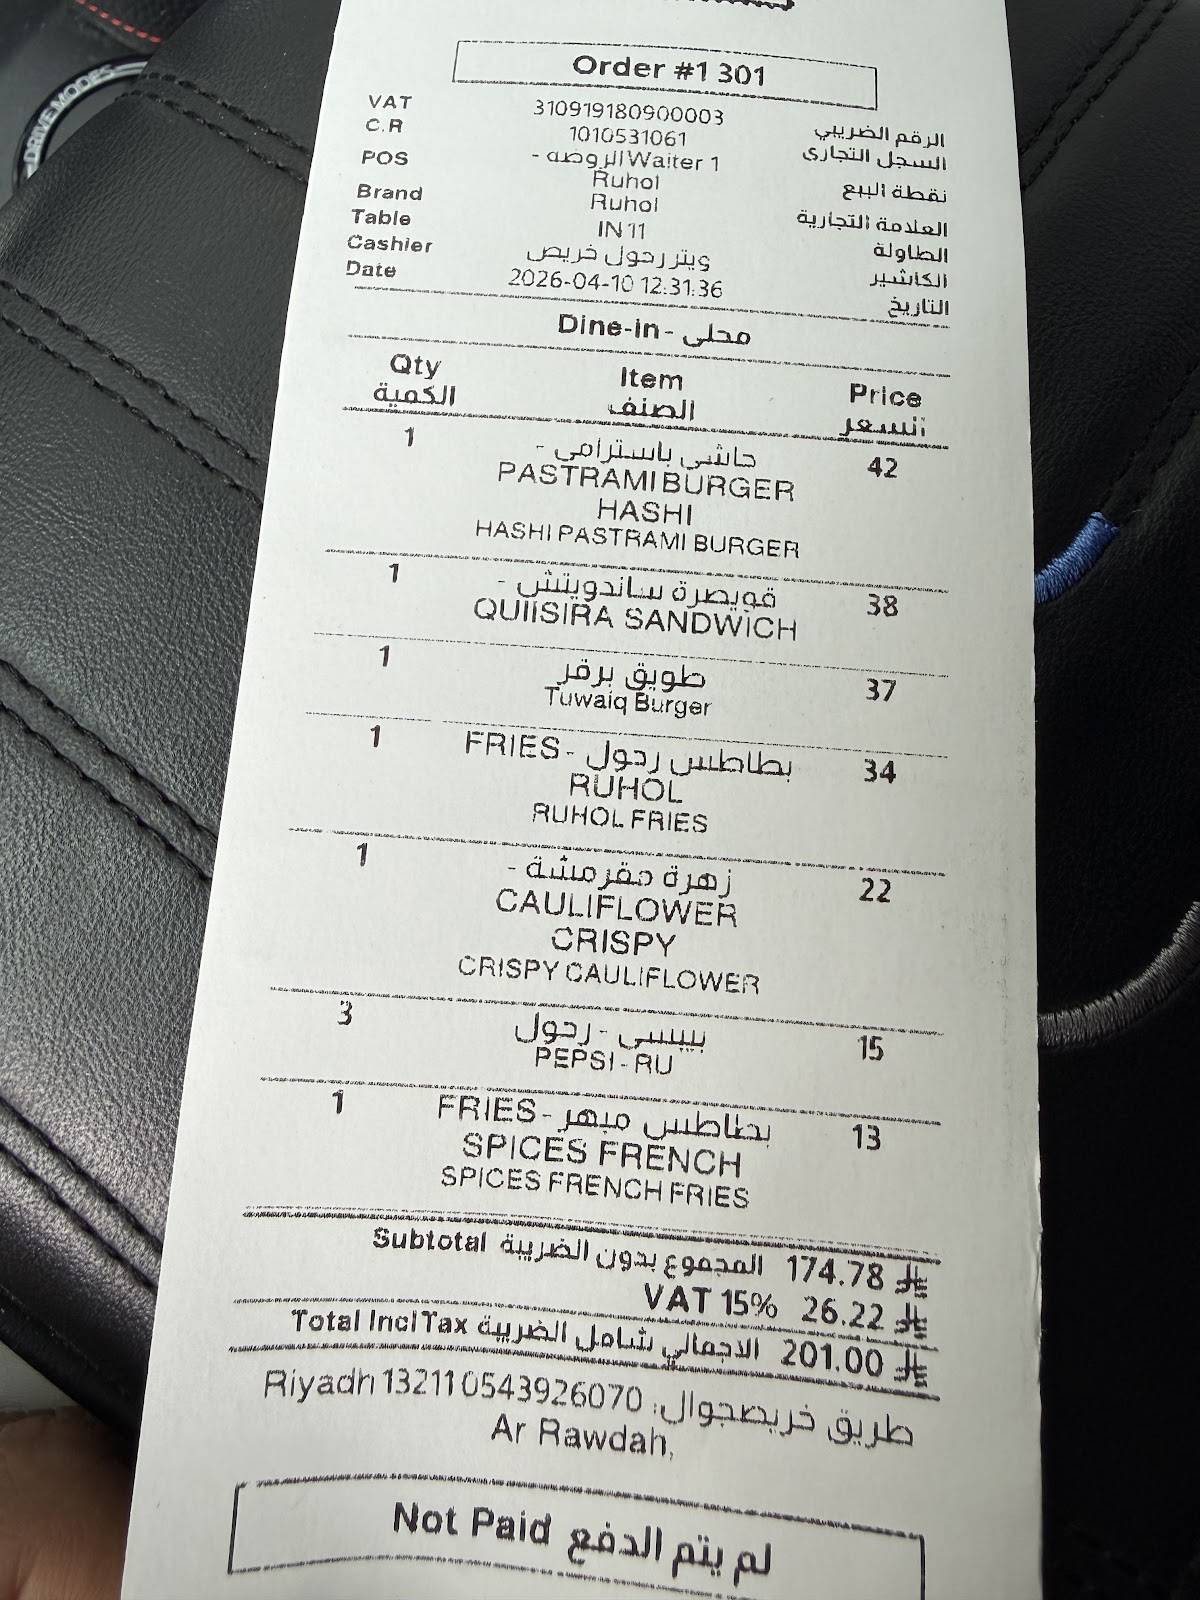 DRIVE MODES
Order #1301
VAT 310919180900003 الرقم الضريبي
C.R 1010531061 السجل التجاري
POS الروضه Waiter 1 - نقطة البيع
Ruhol
Brand Ruhol العلامة التجارية
Table IN 11 الطاولة
Cashier ويتر رحول خريص الكاشير
Date 2026-04-10 12:31:36 التاريخ
Dine-in - محلي
Qty Item Price
الكمية الصنف السعر
1 حاشي باسترامي - 42
PASTRAMI BURGER
HASHI
HASHI PASTRAMI BURGER
1 قويصرة ساندويتش - 38
QUIISIRA SANDWICH
1 طويق برقر 37
Tuwaiq Burger
1 بطاطس رحول - FRIES 34
RUHOL
RUHOL FRIES
1 زهرة مقرمشة - 22
CAULIFLOWER
CRISPY
CRISPY CAULIFLOWER
3 بيبسي - رحول 15
PEPSI - RU
1 بطاطس مبهر - FRIES 13
SPICES FRENCH
SPICES FRENCH FRIES
Subtotal المجموع بدون الضريبة 174.78
VAT 15% 26.22
Total Incl Tax الاجمالي شامل الضريبة 201.00
طريق خريصجوال: 0543926070 Riyadh 13211
Ar Rawdah,
Not Paid لم يتم الدفع